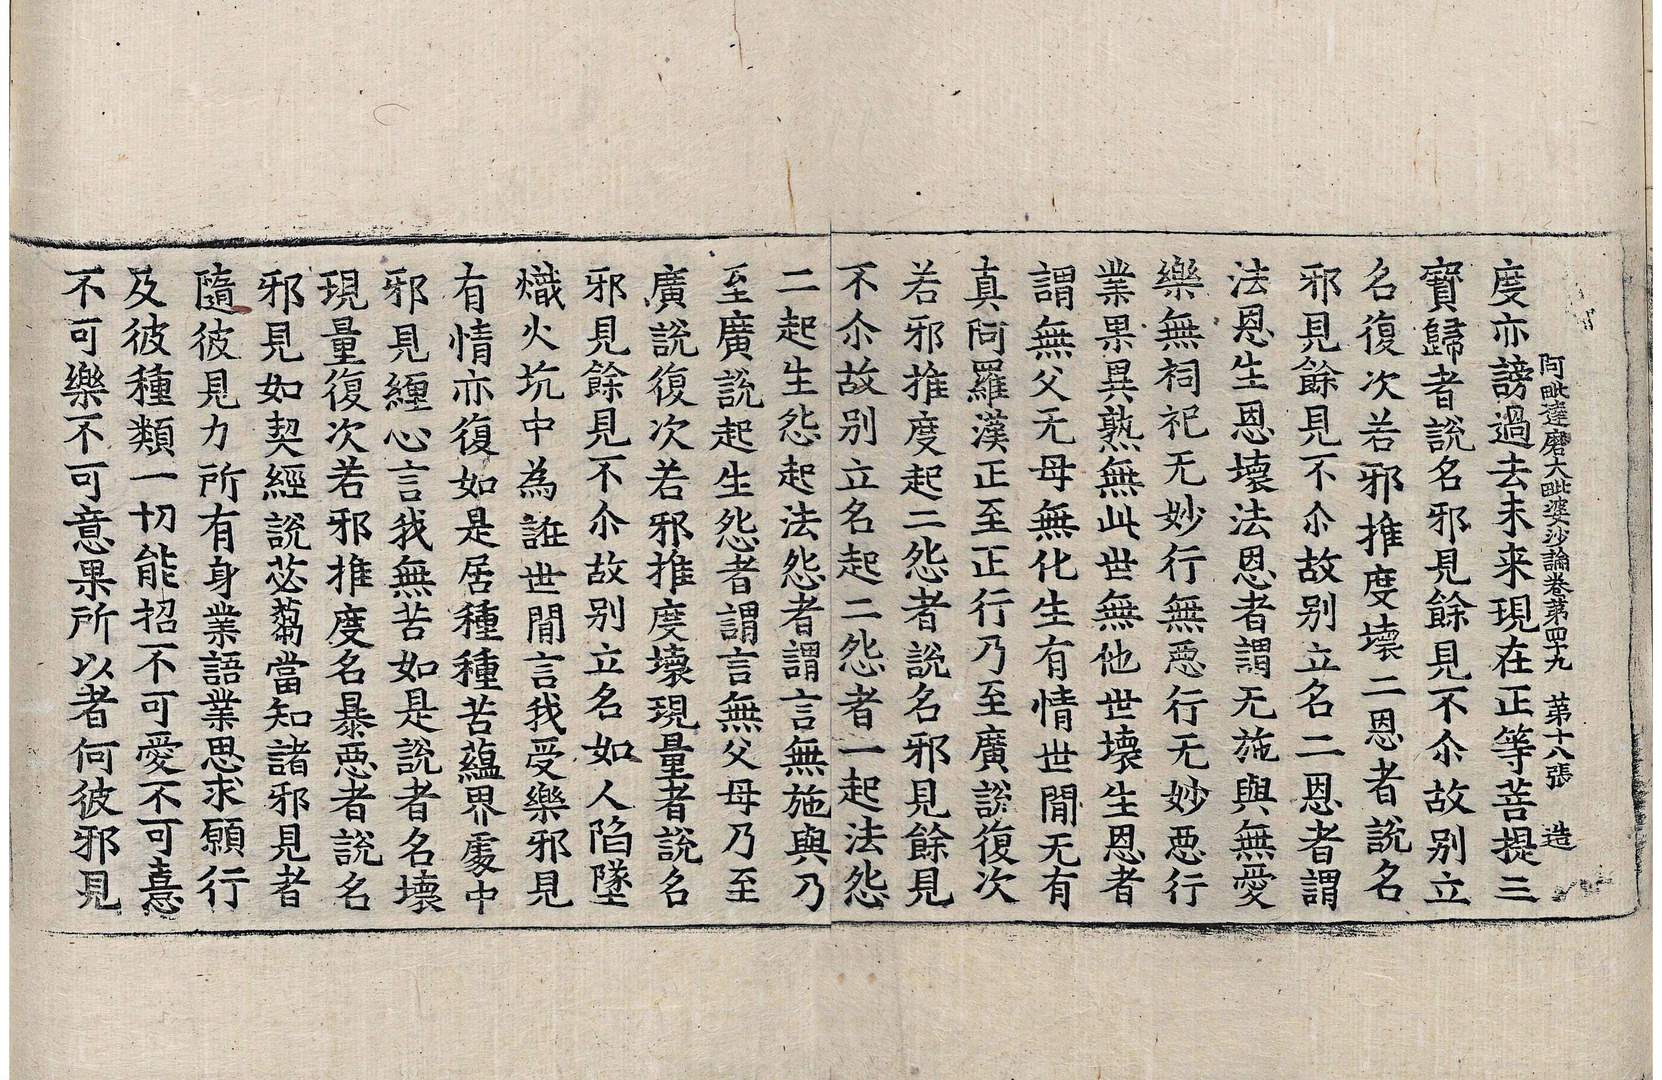 阿毗達磨大毗婆沙論卷第四十九　第十八張　造
度亦謗過去未来現在正等菩提三
寳歸者說名邪見餘見不尒故别立
名復次若邪推度壞二恩者說名
邪見餘見不尒故别立名二恩者謂
法恩生恩壞法恩者謂无施與無愛
樂無祠祀无妙行無惡行无妙惡行
業果異熟無此世無他世壞生恩者
謂無父无母無化生有情世閒无有
真阿羅漢正至正行乃至廣說復次
若邪推度起二怨者說名邪見餘見
不尒故别立名起二怨者一起法怨
二起生怨起法怨者謂言無施與乃
至廣說起生怨者謂言無父母乃至
廣說復次若邪推度壞現量者說名
邪見餘見不尒故别立名如人陷墜
熾火坑中為誑世閒言我受樂邪見
有情亦復如是居種種苦蘊界處中
邪見纏心言我無苦如是說者名壞
現量復次若邪推度名暴惡者說名
邪見如契經說苾蒭當知諸邪見者
隨彼見力所有身業語業思求願行
及彼種類一切能招不可愛不可憙
不可樂不可意果所以者何彼邪見